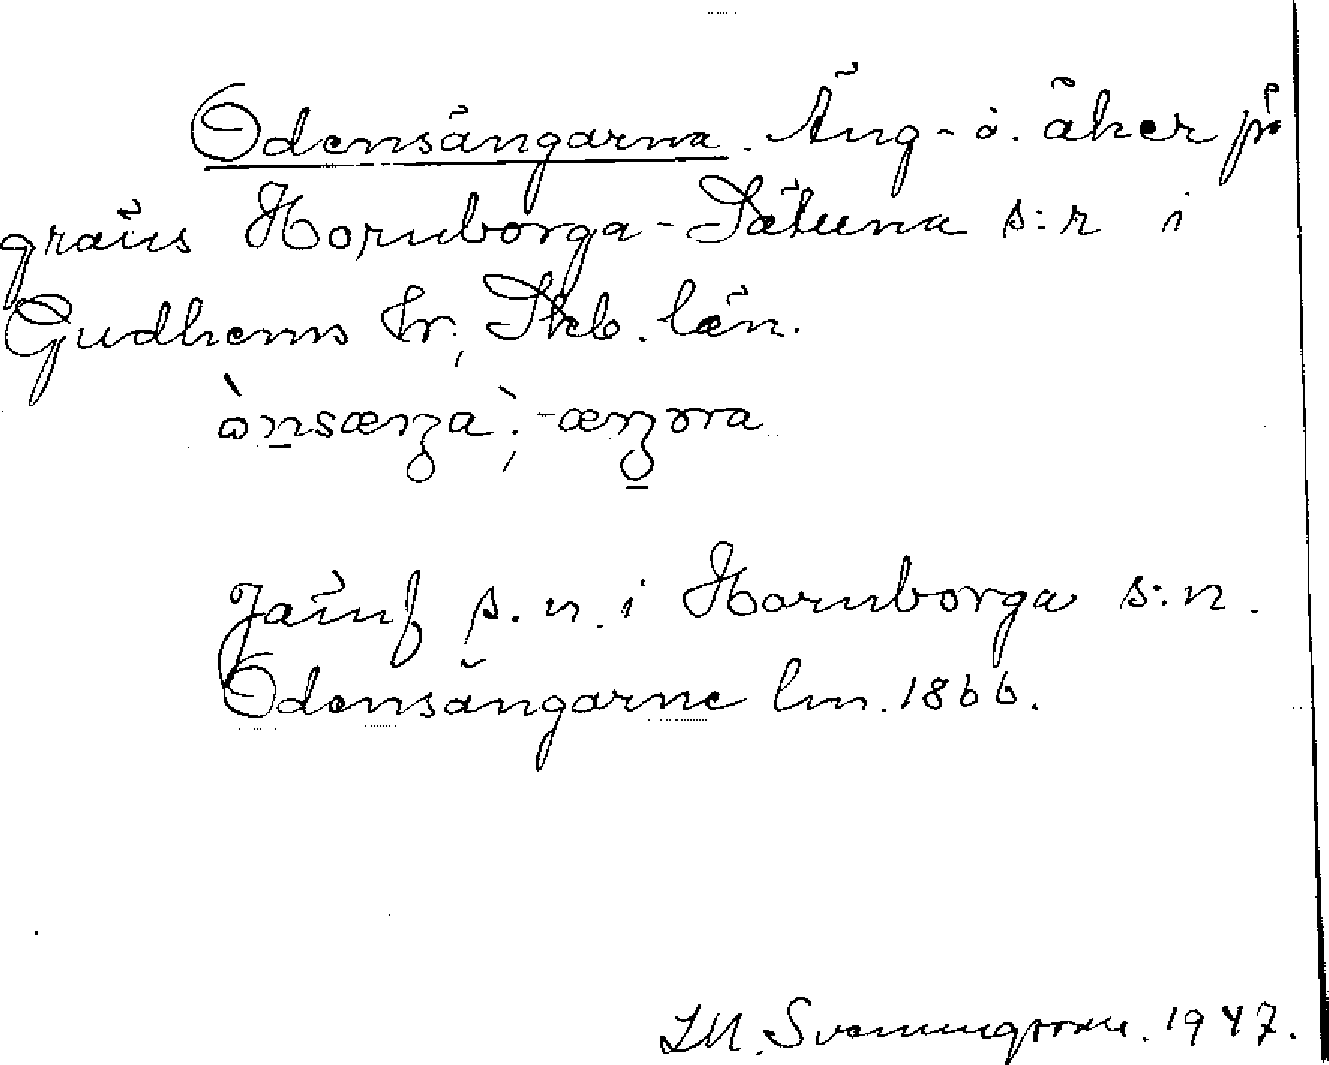 Odensängarna. Äng- o. åker på
gräns Hornborga-Sätuna s:r i
Gudhems hr, Skb. län.
ònsæŋa`, -æŋɔra
Jämf s. n. i Hornborga s:n.
Odensängarne lm. 1866.
Svenningsson. 1947.